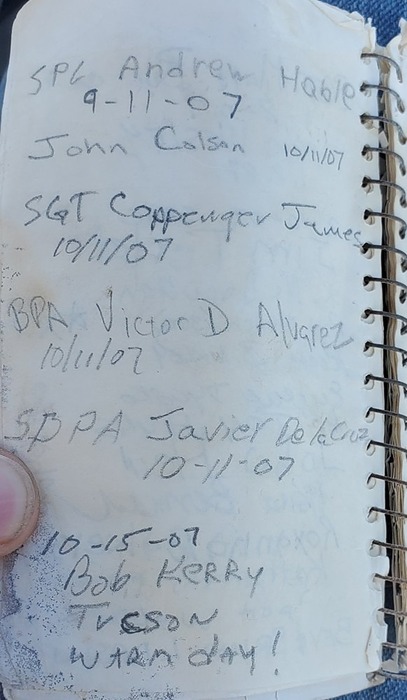 SPC Andrew Hable
9-11-07
John Colson 10/11/07
SGT Coppenger James
10/11/07
BPA Victor D Alvarez
10/11/07
SBPA Javier De la Cruz
10-11-07
10-15-07
Bob KERRY
TucSoN
WARM dAY!